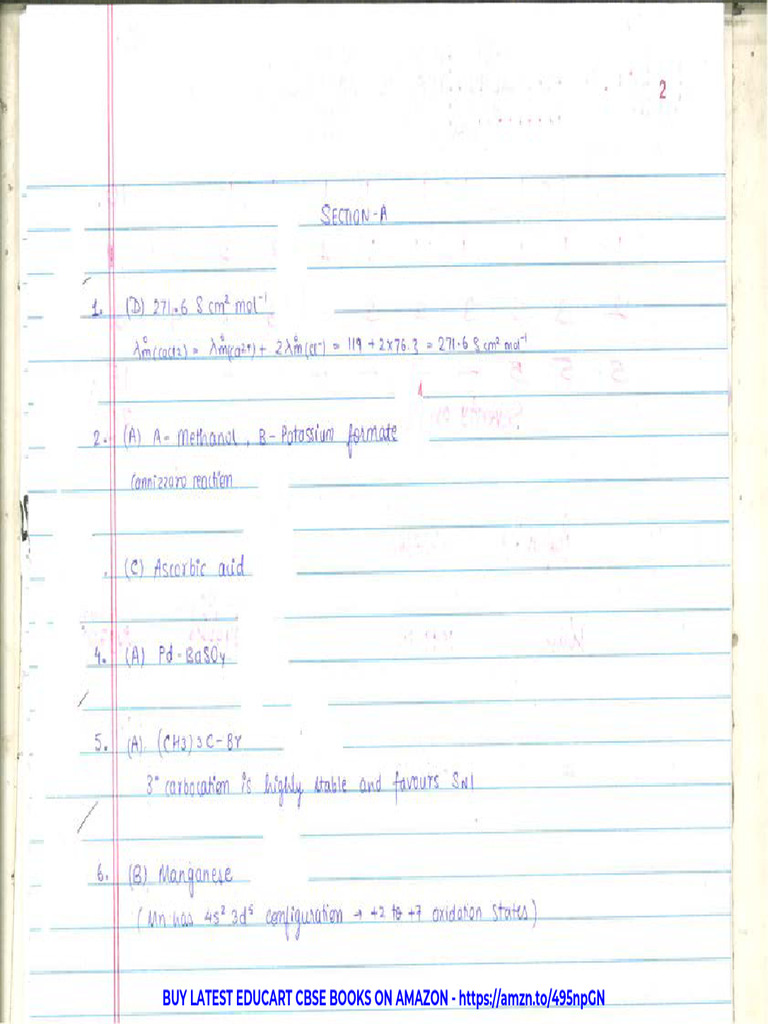 2
SECTION-A
1. (D) 271.6 S cm² mol⁻¹
λ°m(CaCl2) = λ°m(Ca2+) + 2λ°m(Cl⁻) = 119 + 2×76.3 = 271.6 S cm² mol⁻¹
2. (A) A- Methanol, B- Potassium formate
Cannizzaro reaction
(C) Ascorbic acid
4. (A) Pd-BaSO4
5. (A) (CH3)3C-Br
3° carbocation is highly stable and favours SN1
6. (B) Manganese
(Mn has 4s² 3d⁵ configuration → +2 to +7 oxidation states)
BUY LATEST EDUCART CBSE BOOKS ON AMAZON - https://amzn.to/495npGN